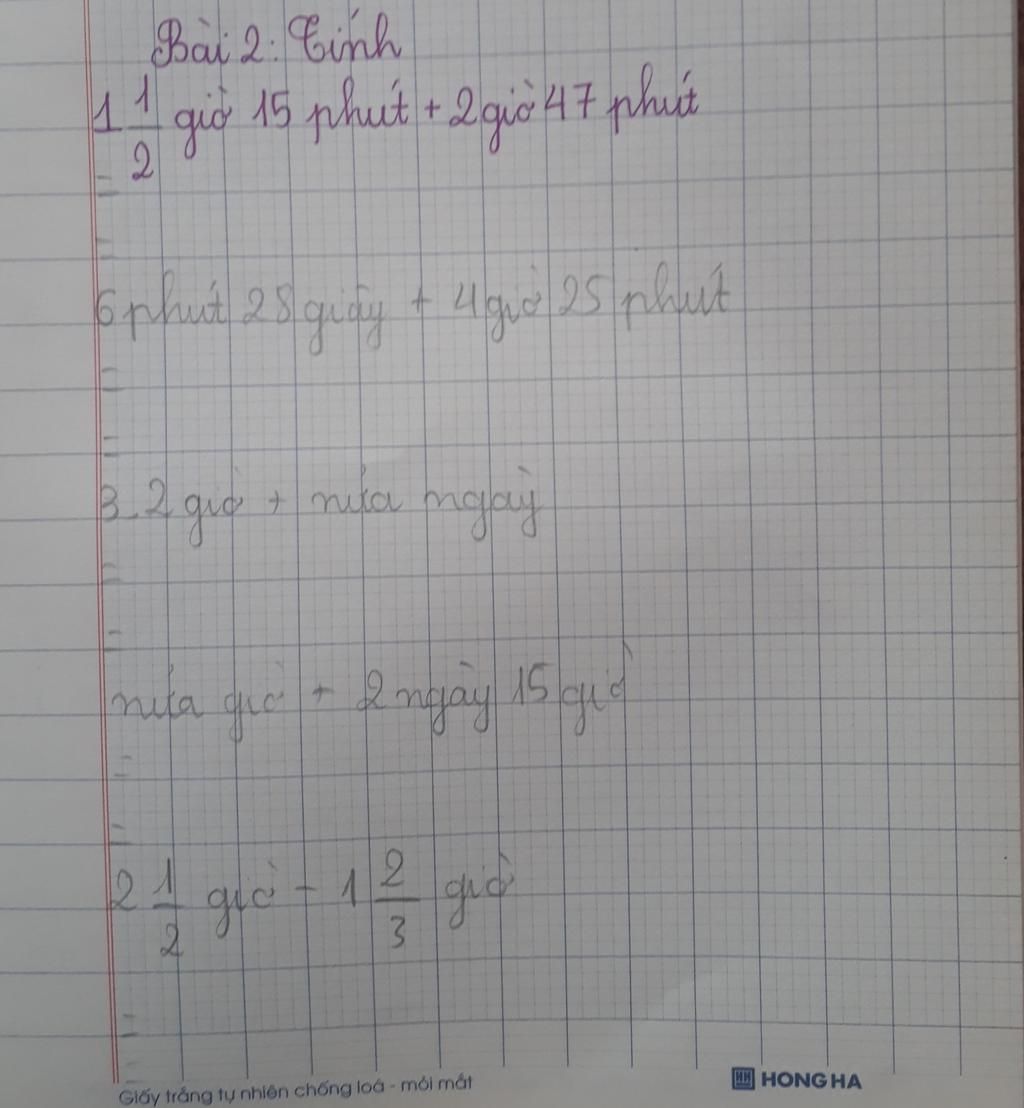 Bài 2: Tính
1 1/2 giờ 15 phút + 2 giờ 47 phút
=
=
6 phút 28 giây + 4 giờ 25 phút
=
=
3.2 giờ + nửa ngày
=
=
nửa giờ + 2 ngày 15 giờ
=
=
2 1/2 giờ - 1 2/3 giờ
=
=
Giấy trắng tự nhiên chống loá - mỏi mắt
HH HONG HA